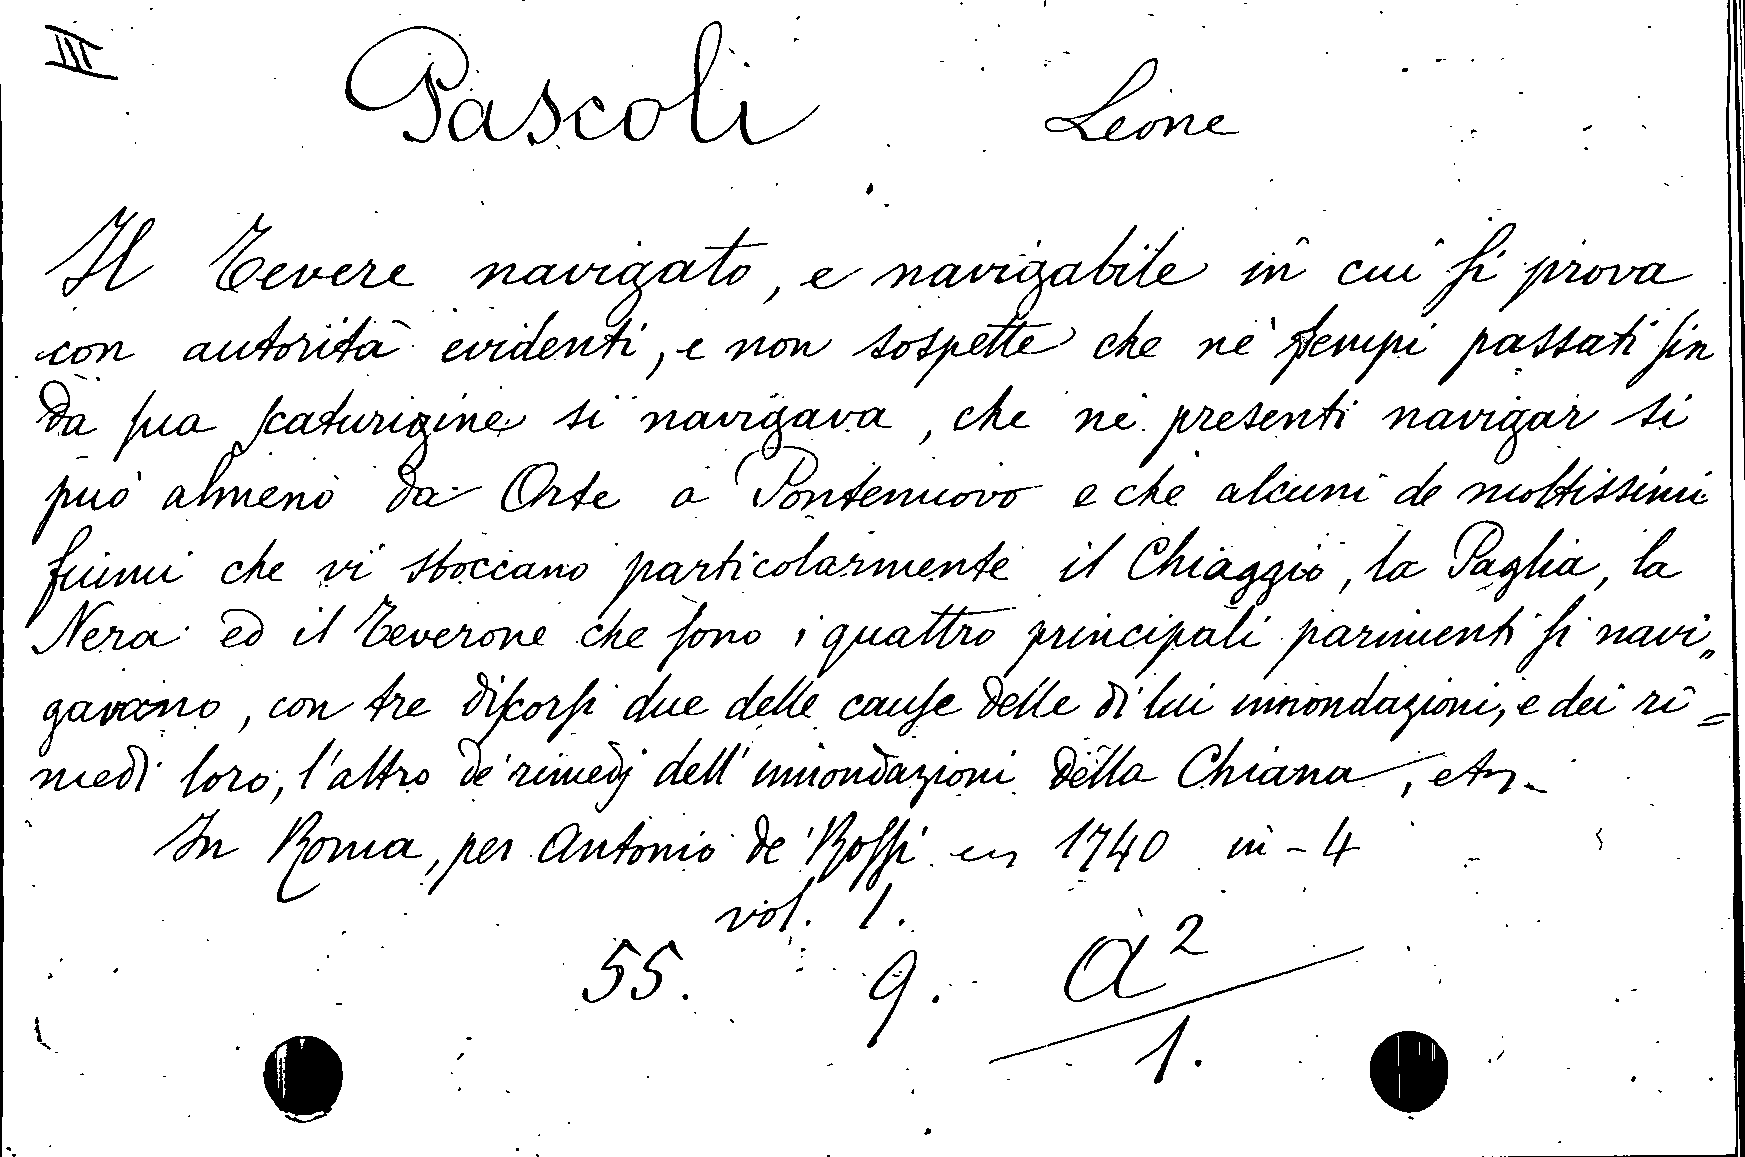 III
Pascoli Leone
Il Tevere navigato, e navigabile in cui si prova
con autorità evidenti, e non sospette che ne' tempi passati sin
da sua scaturigine si navigava, che ne' presenti navigar si
può almeno da Orte a Pontenuovo e che alcuni de moltissimi
fiumi che vi sboccano particolarmente il Chiaggio, la Paglia, la
Nera ed il Teverone che sono i quattro principali parimenti si navi„
gavano, con tre discorsi due delle cause delle di lui innondazioni, e dei ri=
medi loro, l'altro de' rimedj dell'innondazioni della Chiana, etc.
In Roma, per Antonio de' Rossi 1740 in-4
vol. 1.
55. 9. a²/1.